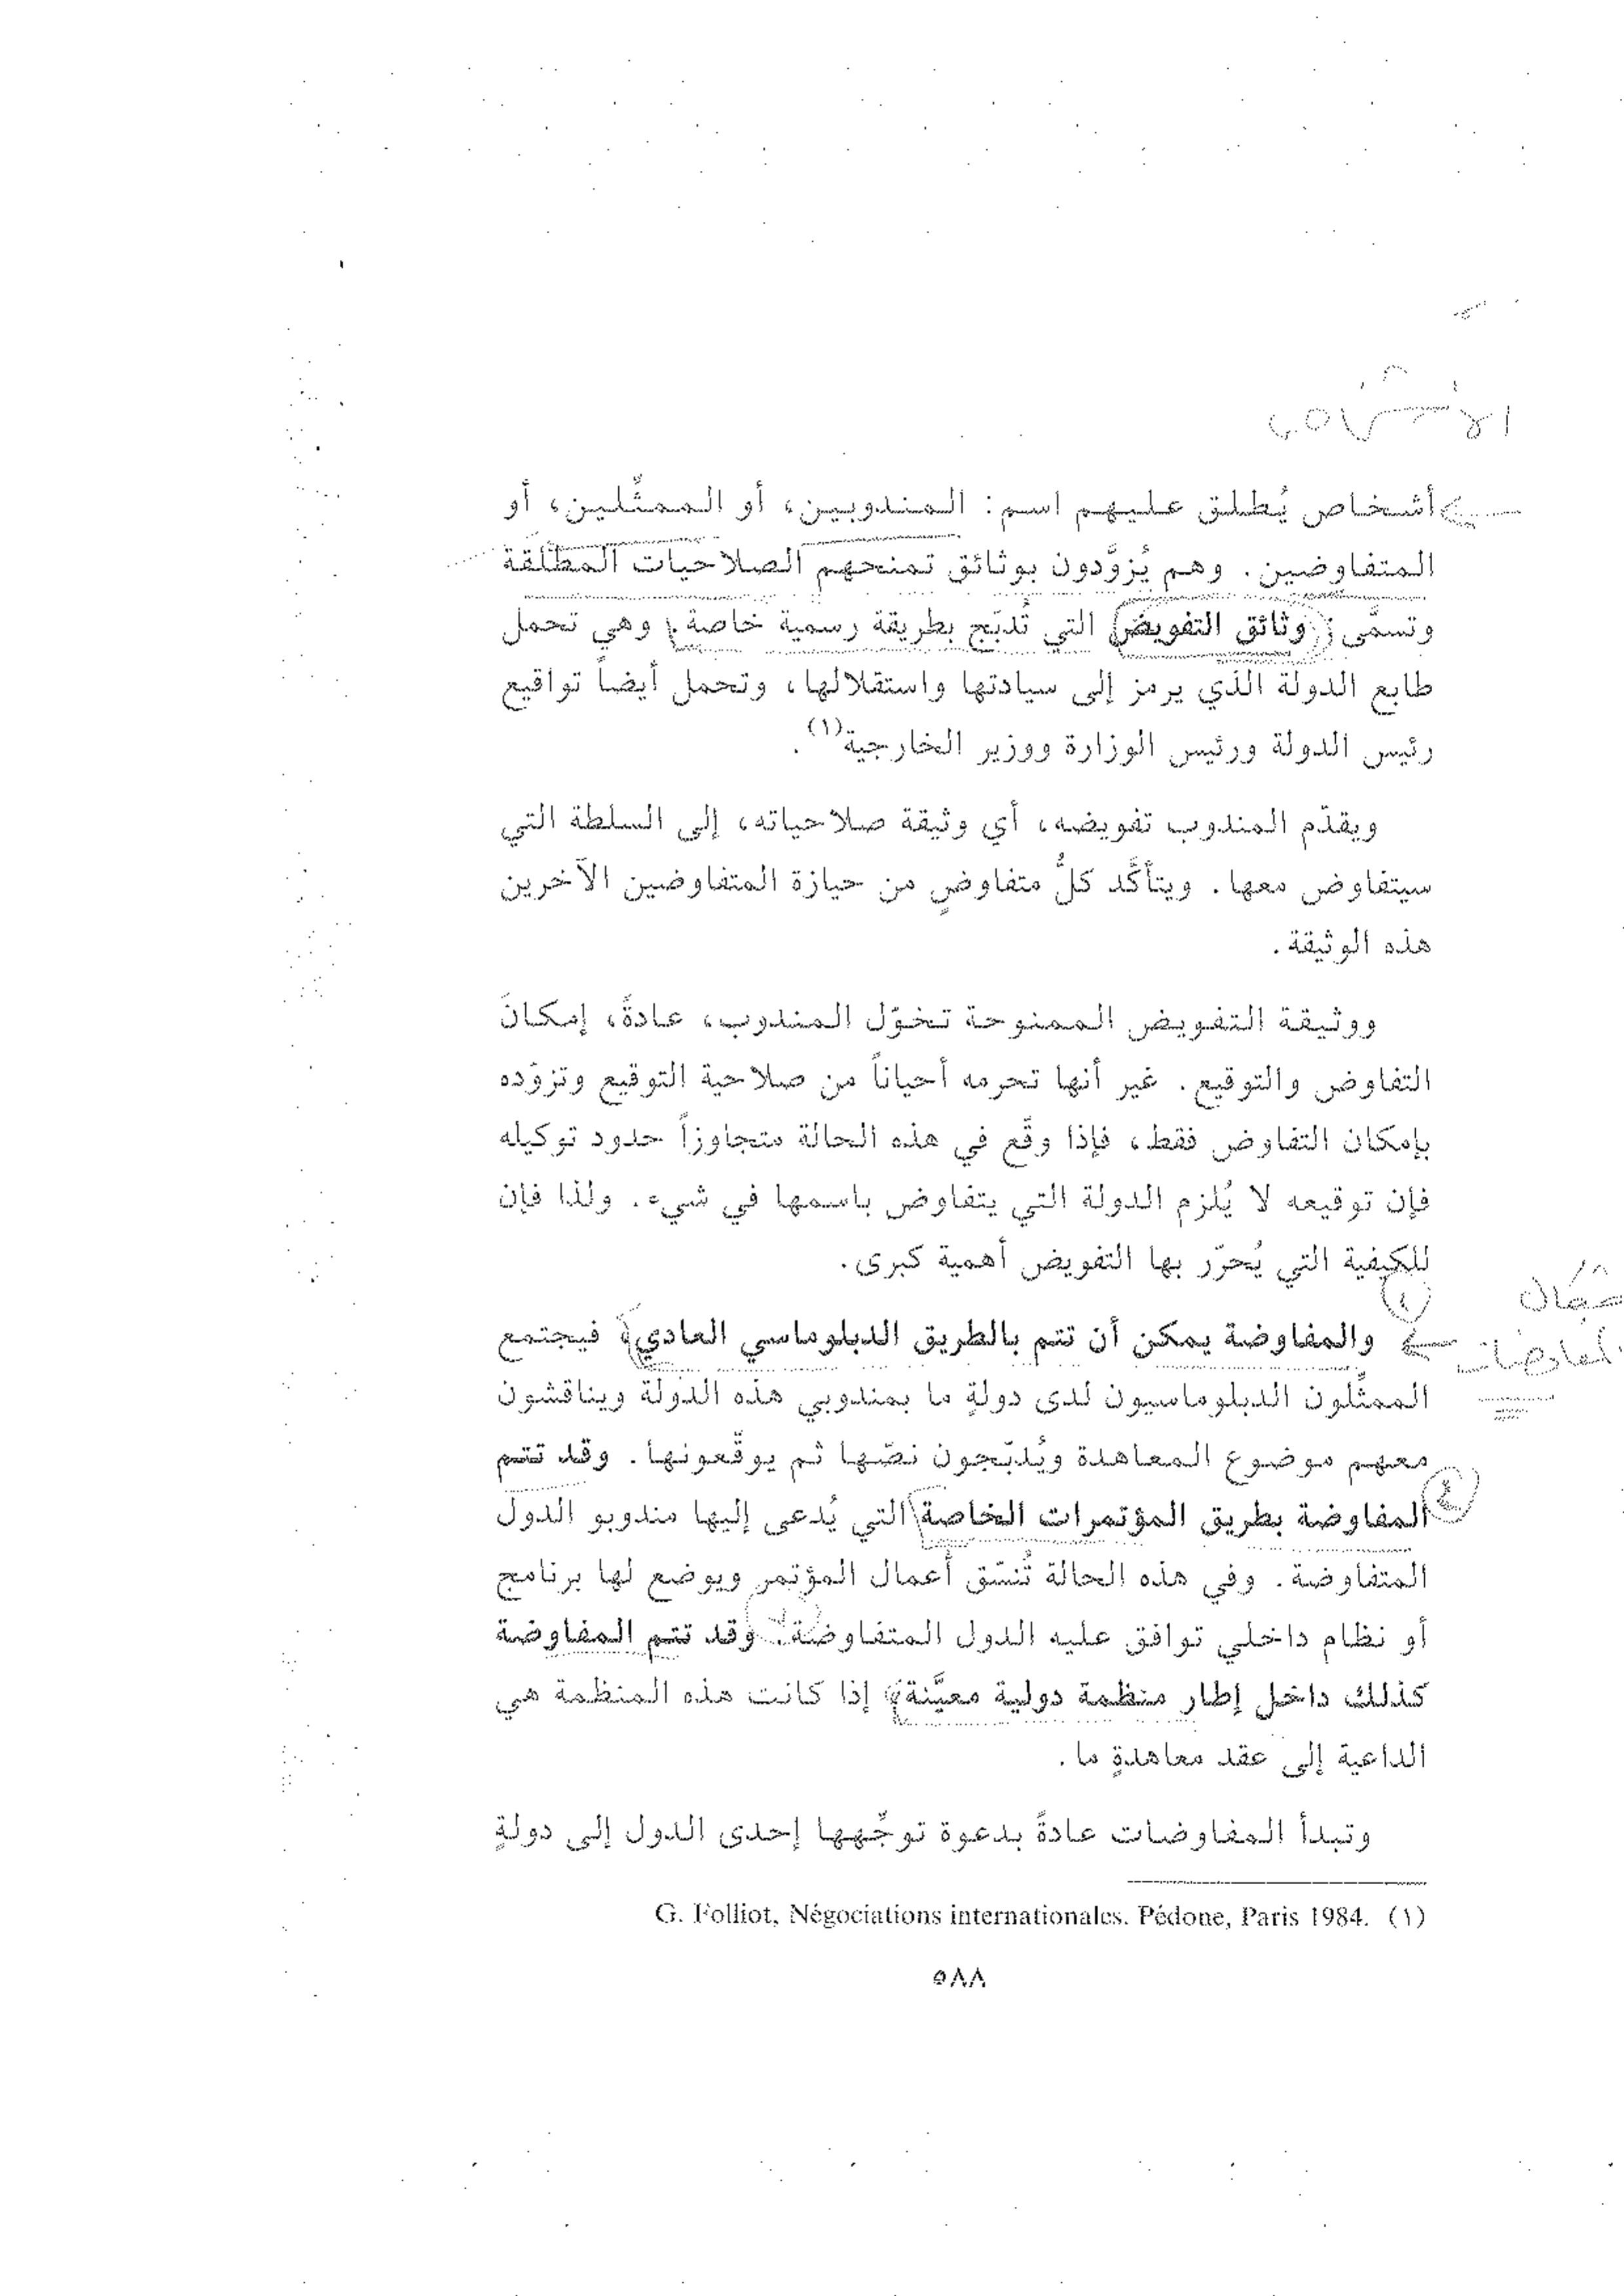 الأشخاص
أشخاص يُطلق عليهم اسم: المندوبين، أو الممثِّلين، أو
المتفاوضين. وهم يُزوَّدون بوثائق تمنحهم الصلاحيات المطلقة
وتسمَّى: وثائق التفويض التي تُدبّج بطريقة رسمية خاصة. وهي تحمل
طابع الدولة الذي يرمز إلى سيادتها واستقلالها، وتحمل أيضاً تواقيع
رئيس الدولة ورئيس الوزارة ووزير الخارجية(١).
ويقدّم المندوب تفويضه، أي وثيقة صلاحياته، إلى السلطة التي
سيتفاوض معها. ويتأكَّد كلُّ متفاوضٍ من حيازة المتفاوضين الآخرين
هذه الوثيقة.
ووثيقة التفويض الممنوحة تخوّل المندوب، عادةً، إمكانَ
التفاوض والتوقيع. غير أنها تحرمه أحياناً من صلاحية التوقيع وتزوّده
بإمكان التفاوض فقط، فإذا وقَّع في هذه الحالة متجاوزاً حدود توكيله
فإن توقيعه لا يُلزم الدولة التي يتفاوض باسمها في شيء. ولذا فإن
للكيفية التي يُحرّر بها التفويض أهمية كبرى.
والمفاوضة يمكن أن تتم بالطريق الدبلوماسي العادي، فيجتمع
الممثِّلون الدبلوماسيون لدى دولةٍ ما بمندوبي هذه الدولة ويناقشون
معهم موضوع المعاهدة ويُدبّجون نصّها ثم يوقّعونها. وقد تتم
المفاوضة بطريق المؤتمرات الخاصة التي يُدعى إليها مندوبو الدول
المتفاوضة. وفي هذه الحالة تُنسّق أعمال المؤتمر ويوضع لها برنامج
أو نظام داخلي توافق عليه الدول المتفاوضة. وقد تتم المفاوضة
كذلك داخل إطار منظمة دولية معيَّنة، إذا كانت هذه المنظمة هي
الداعية إلى عقد معاهدةٍ ما.
وتبدأ المفاوضات عادةً بدعوة توجِّهها إحدى الدول إلى دولةٍ
(١) G. Folliot, Négociations internationales. Pédone, Paris 1984.
٥٨٨